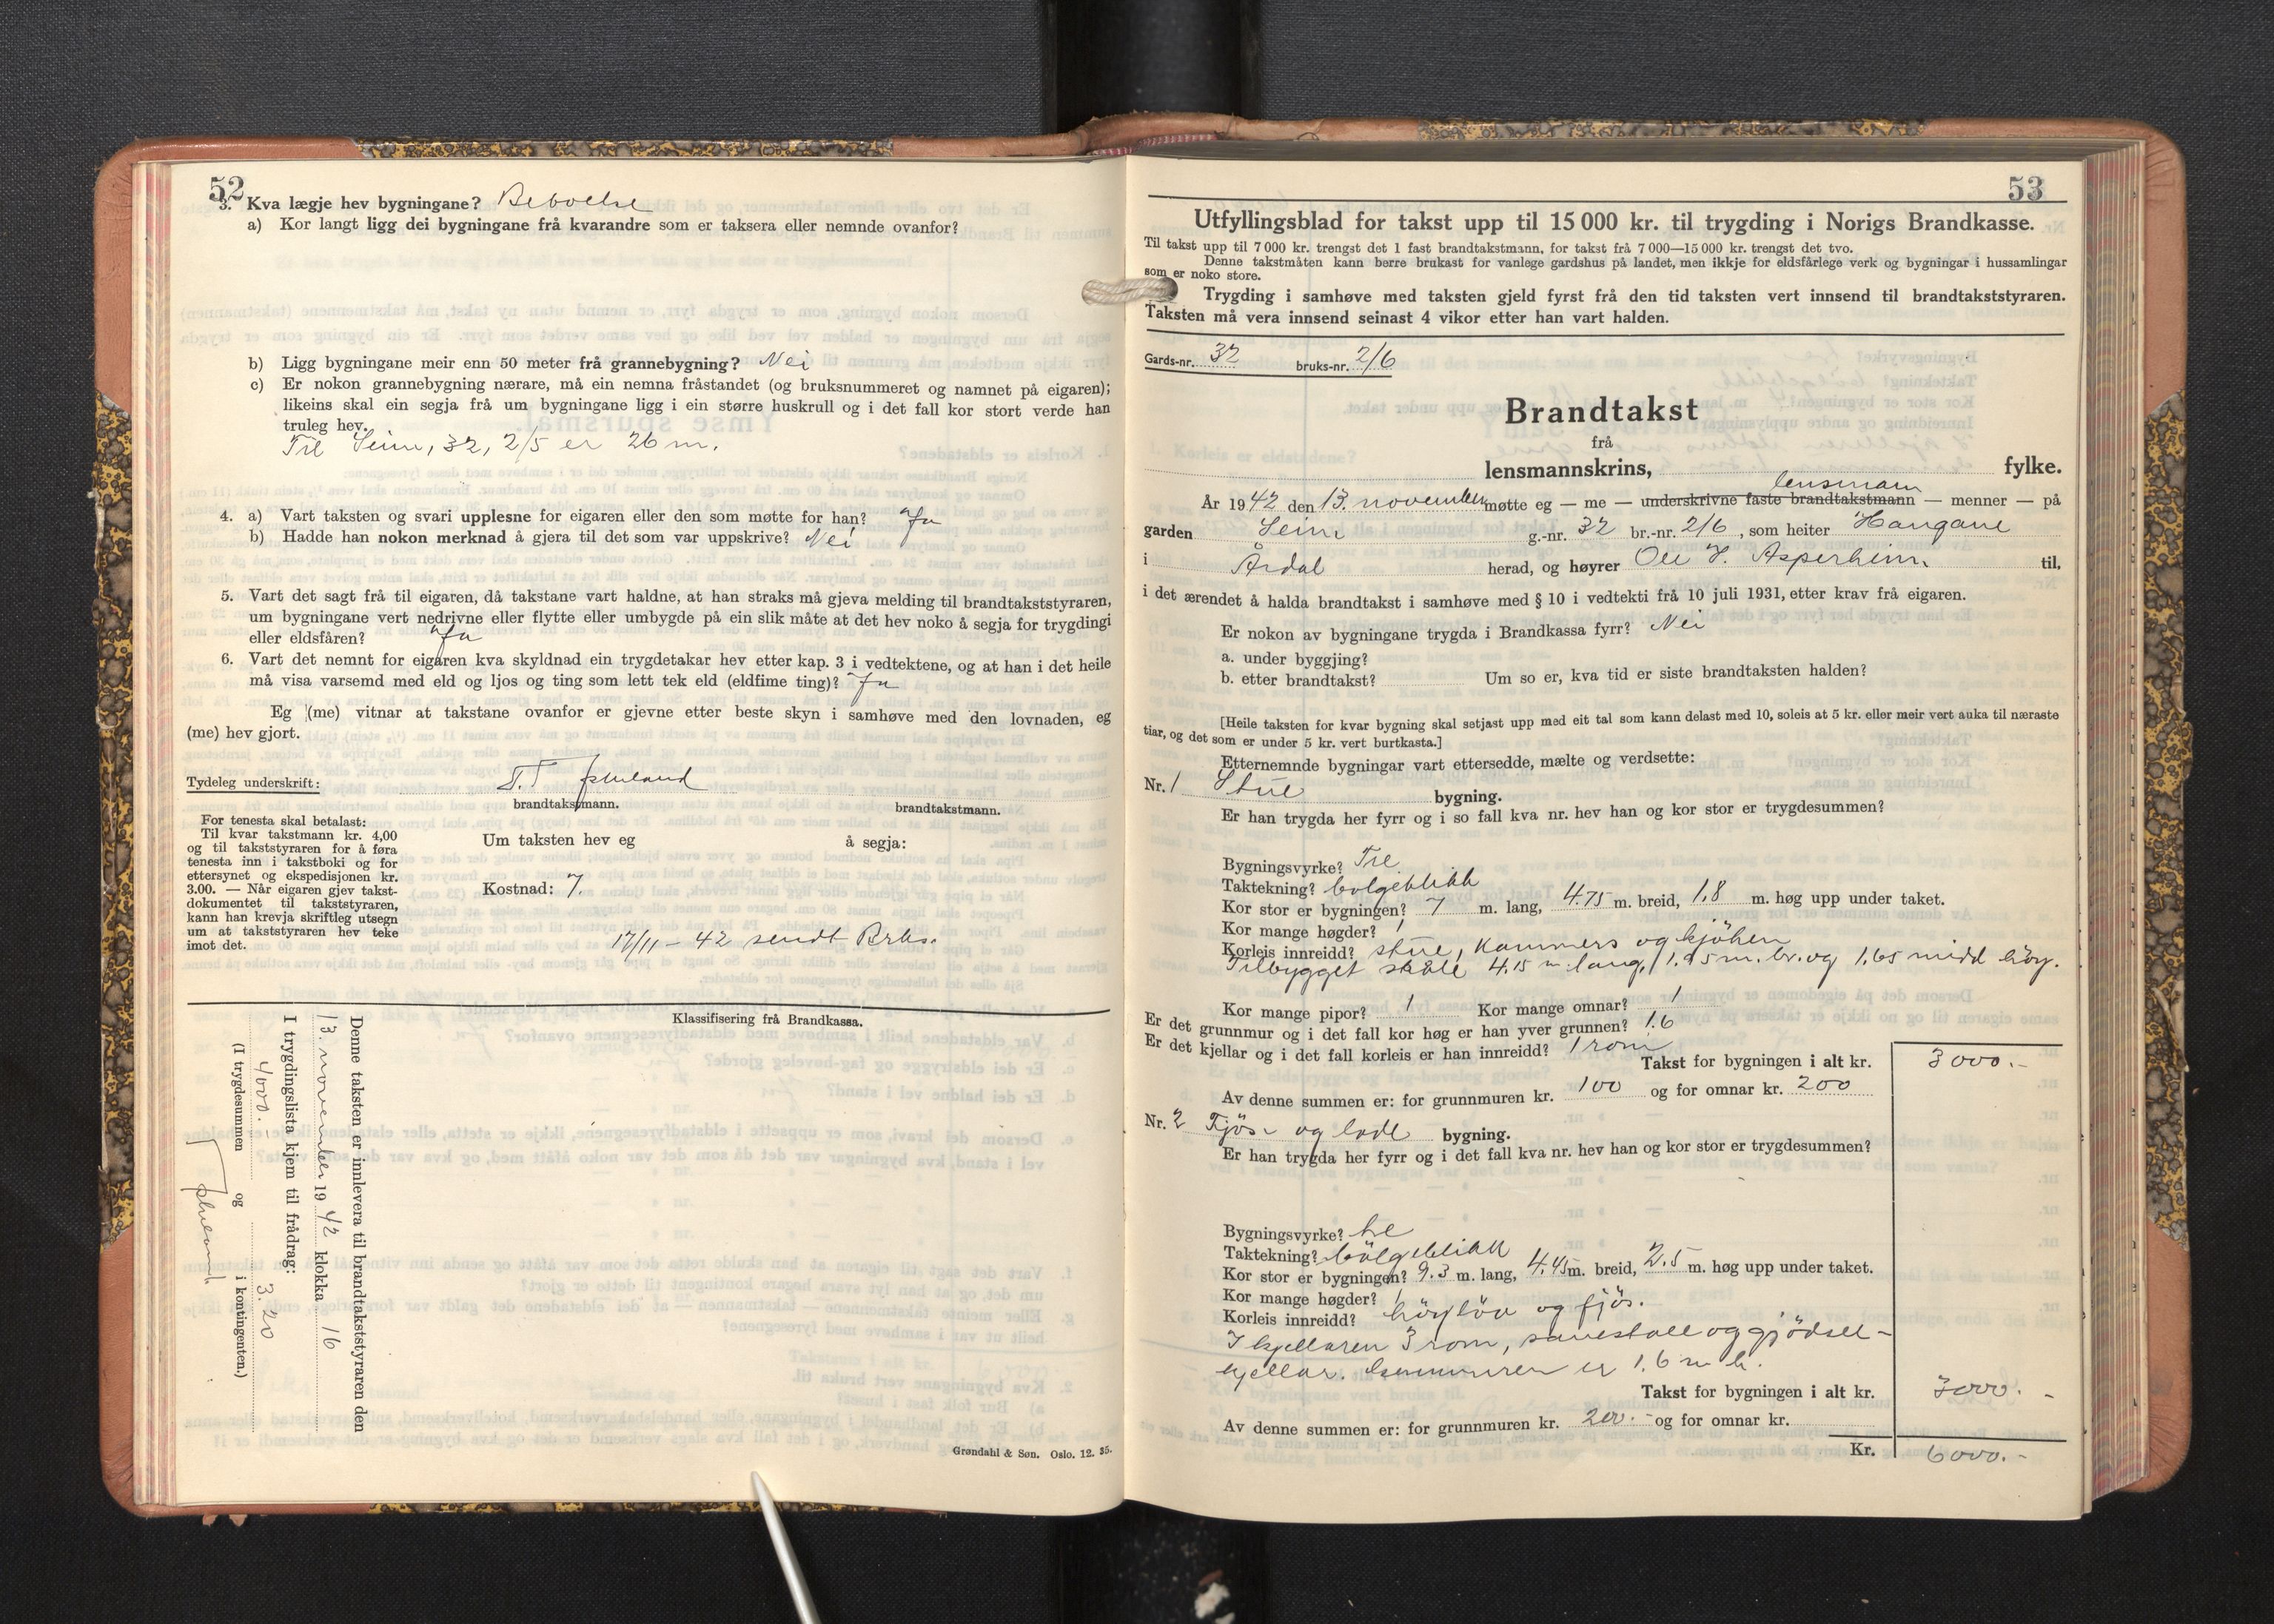 52
3. Kva lægje hev bygningane? Beboelse
a) Kor langt ligg dei bygningane frå kvarandre som er taksera eller nemnde ovanfor?
b) Ligg bygningane meir enn 50 meter frå grannebygning? Nei
c) Er nokon grannebygning nærare, må ein nemna fråstandet (og bruksnummeret og namnet på eigaren);
likeins skal ein segja frå um bygningane ligg i ein større huskrull og i det fall kor stort verde han
truleg hev.
Til Seim, 32, 2/5 er 26 m.
4. a) Vart taksten og svari upplesne for eigaren eller den som møtte for han? Ja
b) Hadde han nokon merknad å gjera til det som var uppskrive? Nei
5. Vart det sagt frå til eigaren, då takstane vart haldne, at han straks må gjeva melding til brandtakststyraren,
um bygningane vert nedrivne eller flytte eller umbygde på ein slik måte at det hev noko å segja for trygdingi
eller eldsfåren? Ja
6. Vart det nemnt for eigaren kva skyldnad ein trygdetakar hev etter kap. 3 i vedtektene, og at han i det heile
må visa varsemd med eld og ljos og ting som lett tek eld (eldfime ting)? Ja
Eg (me) vitnar at takstane ovanfor er gjevne etter beste skyn i samhøve med den lovnaden, eg
(me) hev gjort.
Tydeleg underskrift:
brandtakstmann. brandtakstmann.
For tenesta skal betalast:
Til kvar takstmann kr. 4,00
og til takststyraren for å føra
tenesta inn i takstboki og for
ettersynet og ekspedisjonen kr.
3.00. — Når eigaren gjev takst-
dokumentet til takststyraren,
kann han krevja skriftleg utsegn
um at takststyraren hev teke
imot det.
Um taksten hev eg å segja:
Kostnad: 7.
17/11 - 42 sendt Brks.
Klassifisering frå Brandkassa.
Denne taksten er innlevera til brandtakststyraren den
13. november 1942 klokka 16
I trygdingslista kjem til frådrag:
4000.- 3.20
(I trygdesummen og i kontingenten.)
Grøndahl & Søn. Oslo. 12. 35.
53
Utfyllingsblad for takst upp til 15 000 kr. til trygding i Norigs Brandkasse.
Til takst upp til 7 000 kr. trengst det 1 fast brandtakstmann, for takst frå 7 000—15 000 kr. trengst det tvo.
Denne takstmåten kann berre brukast for vanlege gardshus på landet, men ikkje for eldsfårlege verk og bygningar i hussamlingar
som er noko store.
Trygding i samhøve med taksten gjeld fyrst frå den tid taksten vert innsend til brandtakststyraren.
Taksten må vera innsend seinast 4 vikor etter han vart halden.
Gards-nr. 32 bruks-nr. 2/6
Brandtakst
frå
lensmannskrins, fylke.
lensmann
År 1942 den 13. november møtte eg — me — underskrivne faste brandtakstmann — menner — på
garden Seim g.-nr. 32 br.-nr. 2/6, som heiter Haugane
i Årdal herad, og høyrer Ole J. Asperheim. til,
i det ærendet å halda brandtakst i samhøve med § 10 i vedtekti frå 10 juli 1931, etter krav frå eigaren.
Er nokon av bygningane trygda i Brandkassa fyrr? Nei
a. under byggjing?
b. etter brandtakst? Um so er, kva tid er siste brandtaksten halden?
[Heile taksten for kvar bygning skal setjast upp med eit tal som kann delast med 10, soleis at 5 kr. eller meir vert auka til næraste
tiar, og det som er under 5 kr. vert burtkasta.]
Etternemnde bygningar vart ettersedde, mælte og verdsette:
Nr. 1 Stue bygning.
Er han trygda her fyrr og i so fall kva nr. hev han og kor stor er trygdesummen?
Bygningsvyrke? Tre
Taktekning? bølgeblikk
Kor stor er bygningen? 7 m. lang, 4.75 m. breid, 1.8 m. høg upp under taket.
Kor mange høgder? 1
Korleis innreidd? stue, kammers og kjøken
Tilbygget skåle 4.15 m. lang, 1.45 m. br. og 1.65 midd høy.
Kor mange pipor? 1 Kor mange omnar? 1
Er det grunnmur og i det fall kor høg er han yver grunnen? 1.6
Er det kjellar og i det fall korleis er han innreidd? 1 rom
Takst for bygningen i alt kr. 3000.-
Av denne summen er: for grunnmuren kr. 100 og for omnar kr. 200
Nr. 2 Fjös- og lade bygning.
Er han trygda her fyrr og i det fall kva nr. hev han og kor stor er trygdesummen?
Bygningsvyrke? tre
Taktekning? bölgeblikk
Kor stor er bygningen? 9.3 m. lang, 4.45 m. breid, 2.5 m. høg upp under taket.
Kor mange høgder? 1
Korleis innreidd? höyløe og fjös.
I kjellaren 3 rom, sauestall og gjödsel-
kjellar. er 1.6 m h.
Takst for bygningen i alt kr. 3000.-
Av denne summen er: for grunnmuren kr. 200.- og for omnar kr.
Kr. 6000.-